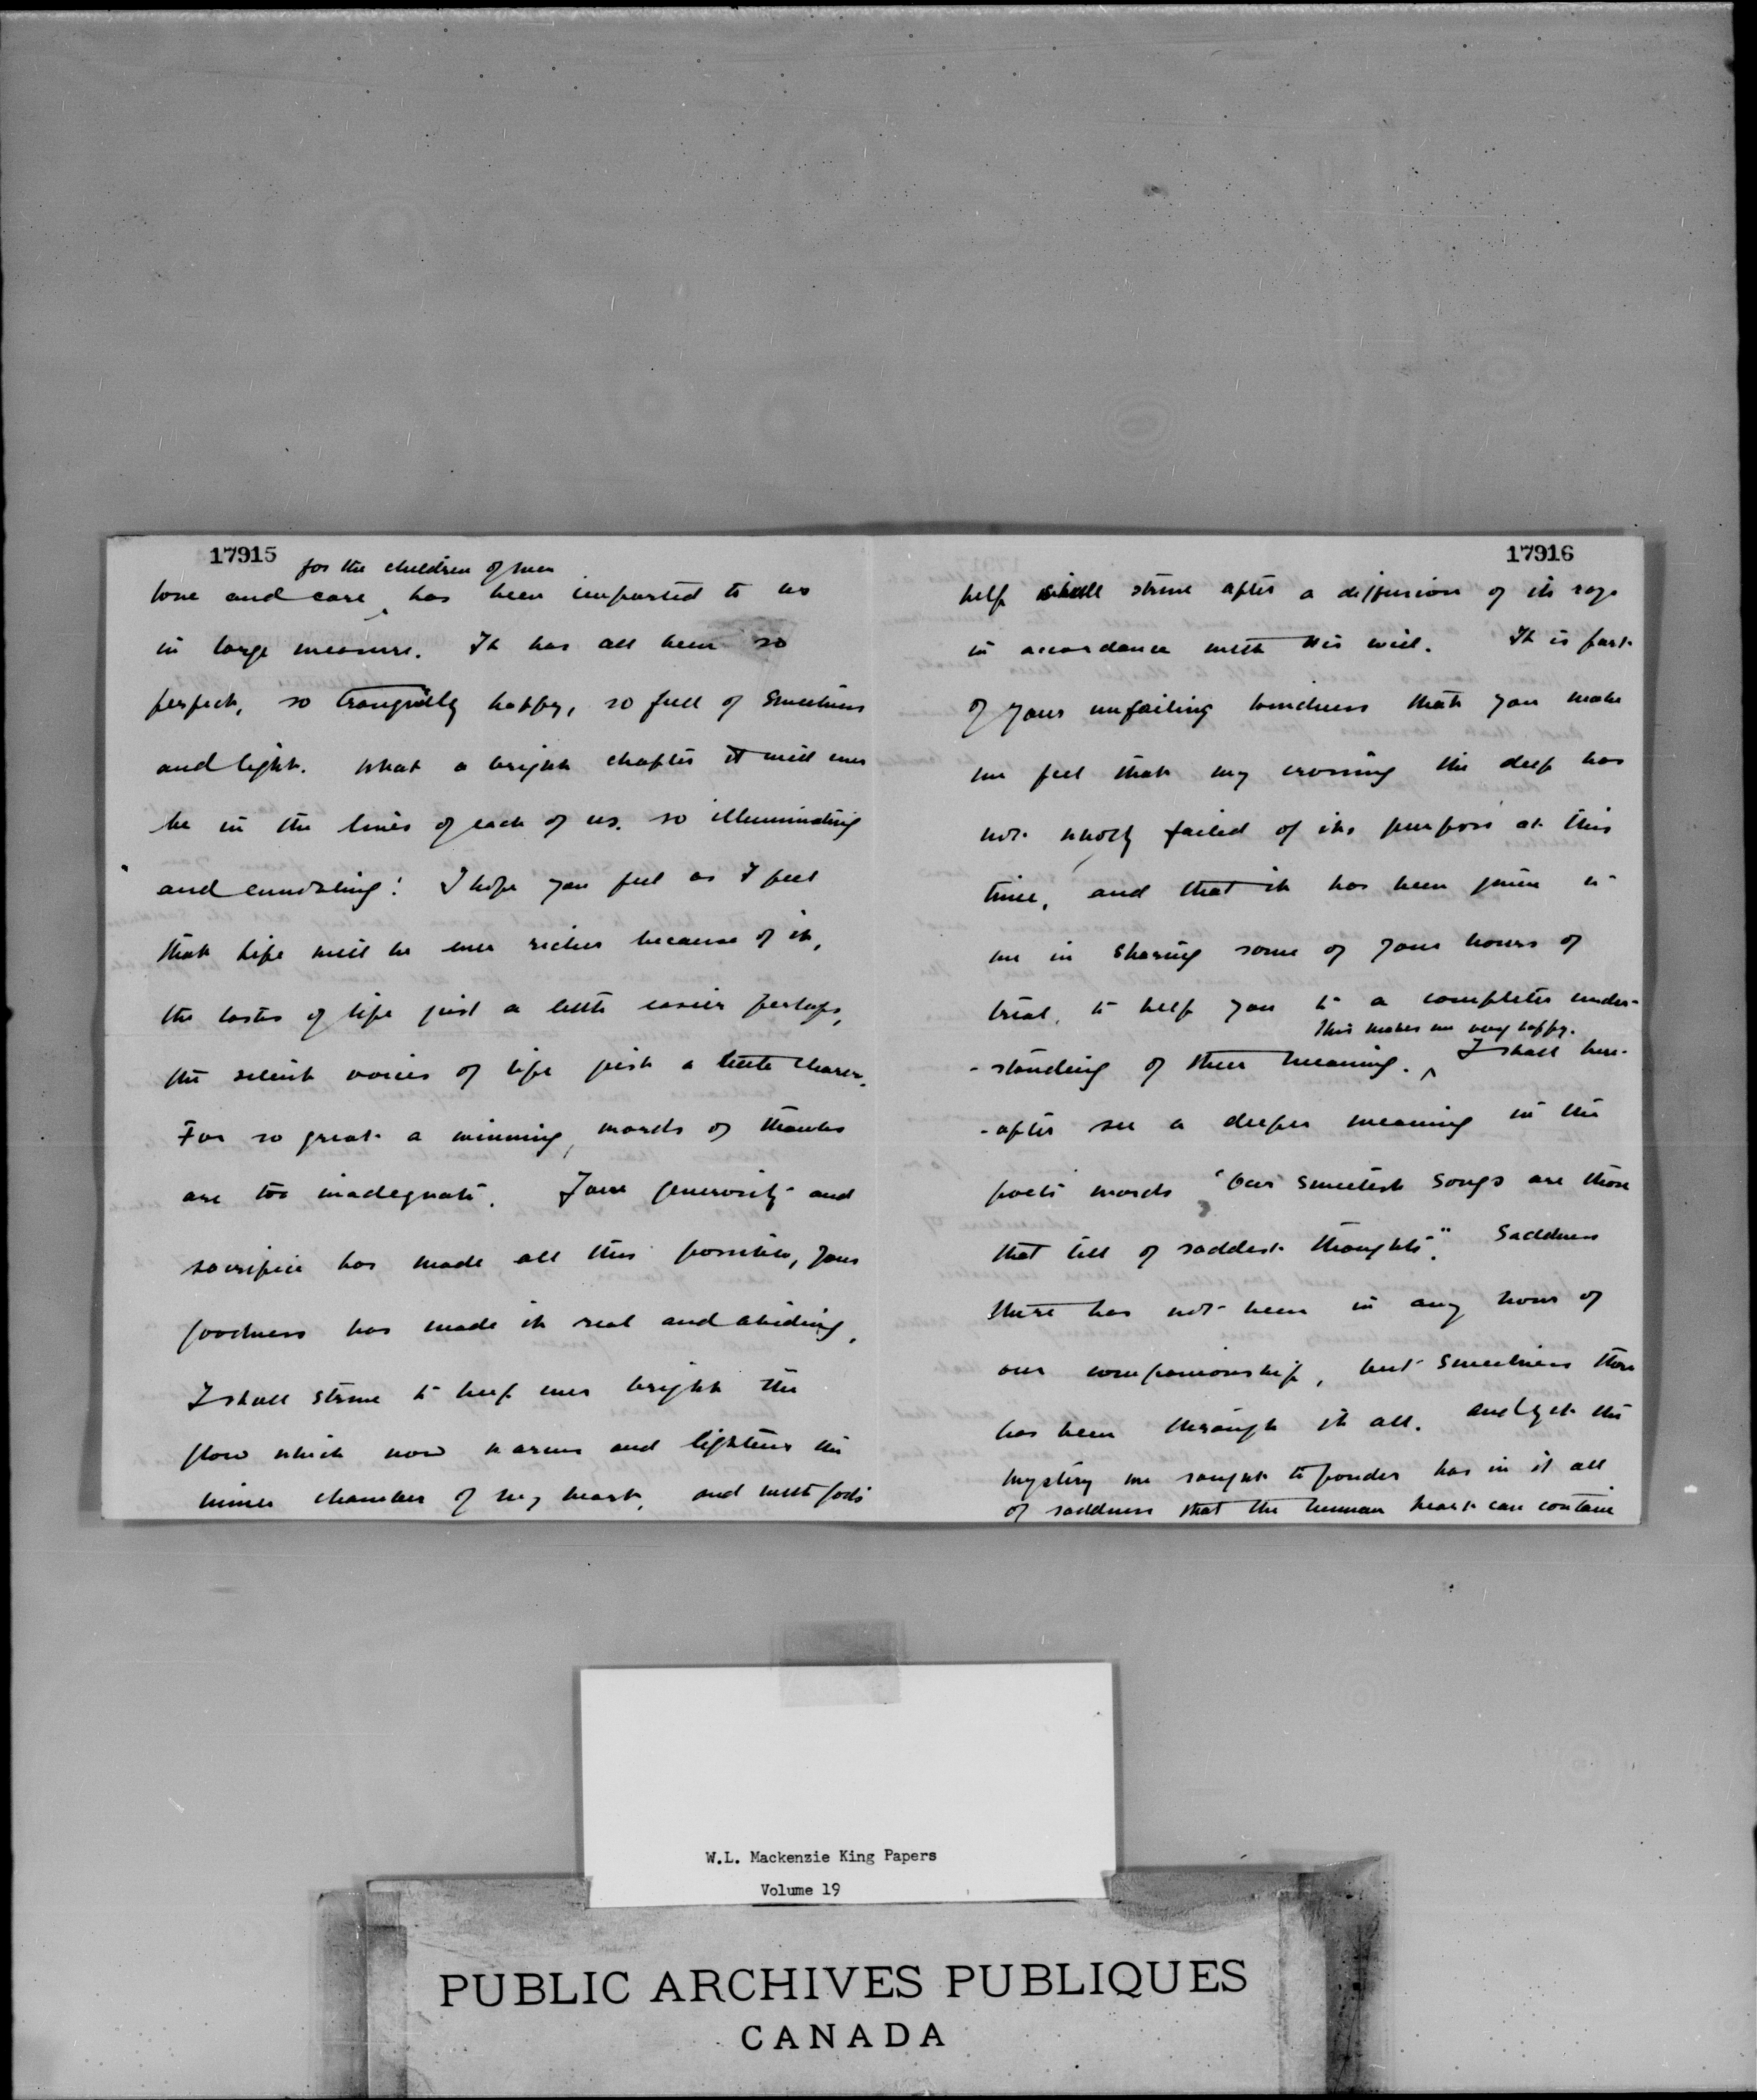 17915
for the children of men
love and care ^ has been imparted to us
in large measure. It has all been so
perfect, so tranquilly happy, so full of sweetness
and light. What a bright chapter it will ever
be in the lives of each of us, so illuminating
and ennobling! I hope you feel as I feel
that life will be ever richer because of it,
the tasks of life just a little easier perhaps,
the silent voices of life just a little clearer.
For so great a winning, words of thanks
are too inadequate. Your generosity and
sacrifice has made all this possible, your
goodness has made it real and abiding.
I shall strive to keep ever bright the
glow which now warms and lightens the
inner chamber of my heart, and with God's
17916
help shall strive after a diffusion of its rays
in accordance with His will. It is part
of your unfailing kindness that you make
me feel that my crossing the deep has
not wholly failed of its purpose at this
time, and that it has been given to
me in sharing some of your hours of
trial, to help you to a completer under-
This makes me very happy.
-standing of their meaning. ^ I shall here-
-after see a deeper meaning in the
poet's words "Our sweetest songs are those
that tell of saddest thoughts". Sadness
there has not been in any hour of
our companionship, but sweetness there
has been through it all. And yet the
mystery we sought to ponder has in it all
of sadness that the human heart can contain
W.L. Mackenzie King Papers
Volume 19
PUBLIC ARCHIVES PUBLIQUES
CANADA